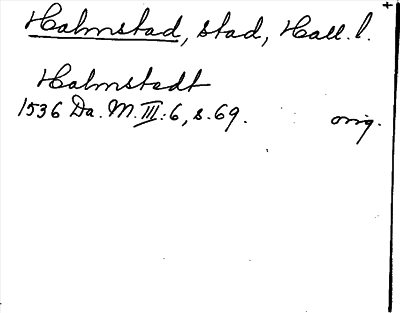 Halmstad, stad, Hall. l.
Halmstedt
1536 Da. M. III: 6, s. 69. orig.